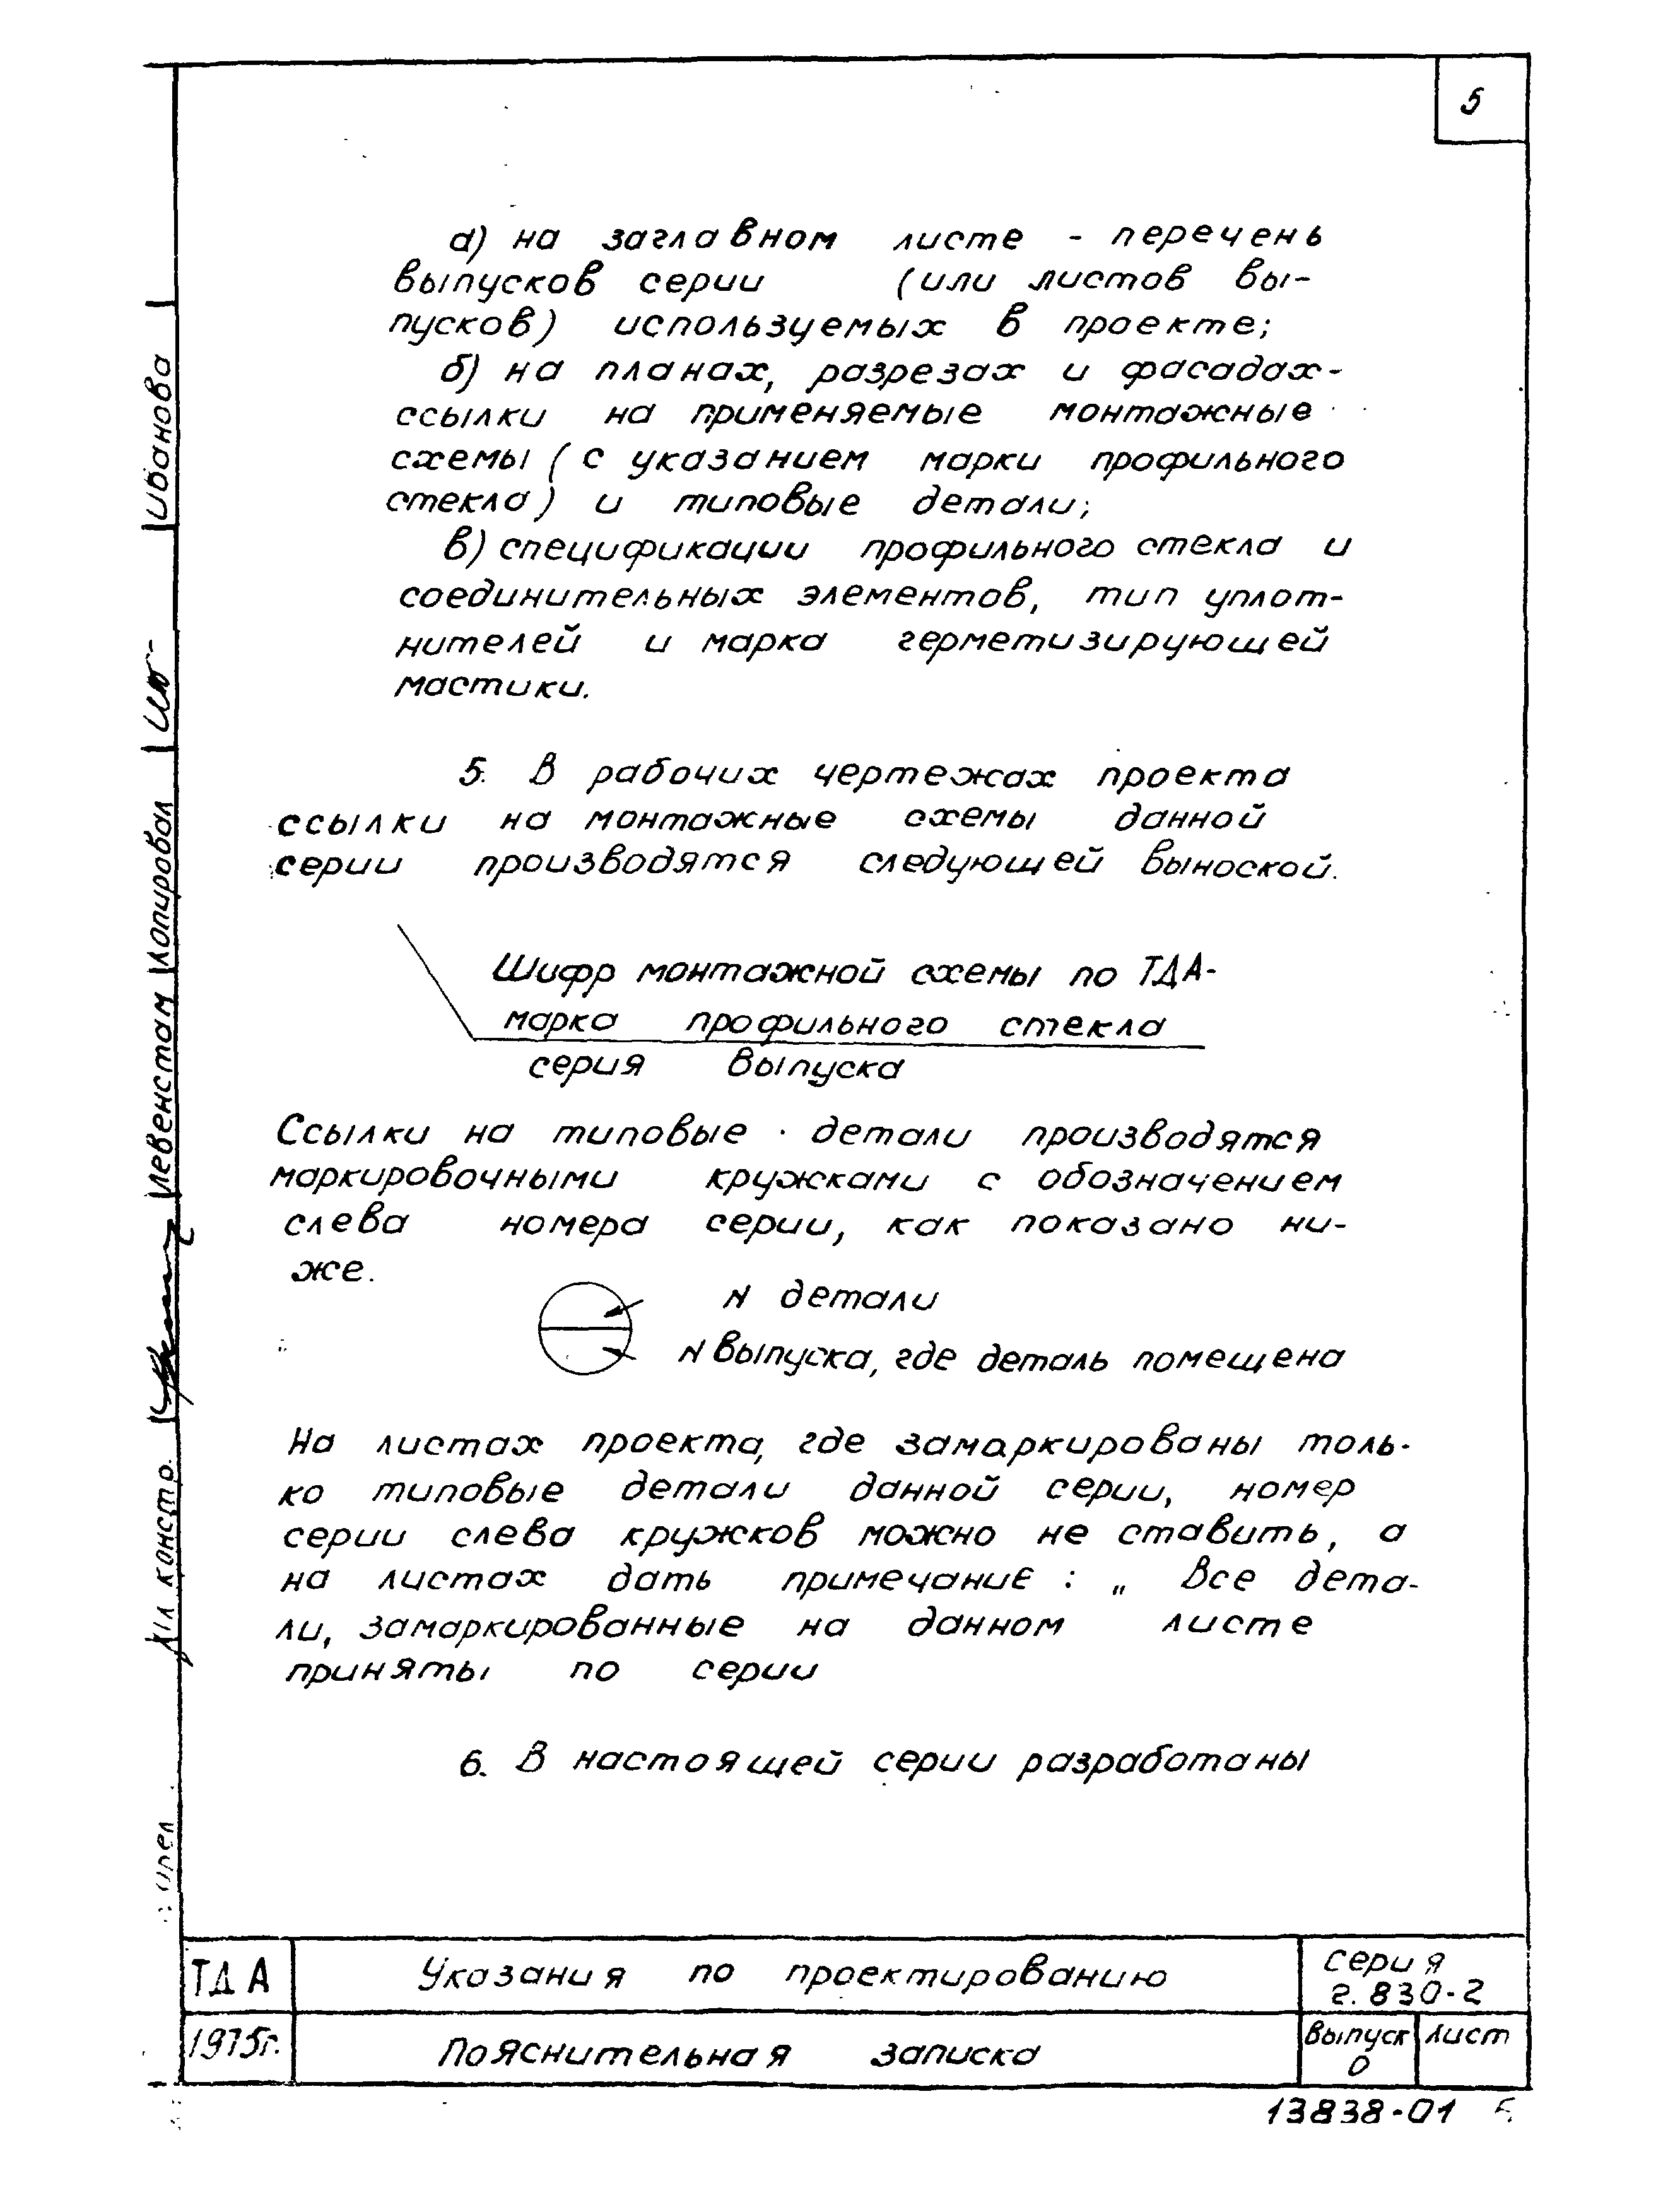 5
а) на заглавном листе - перечень
выпусков серии (или листов вы-
пусков) используемых в проекте;
б) на планах, разрезах и фасадах-
ссылки на применяемые монтажные
схемы (с указанием марки профильного
стекла) и типовые детали;
в) спецификации профильного стекла и
соединительных элементов, тип уплот-
нителей и марка герметизирующей
мастики.
5. В рабочих чертежах проекта
ссылки на монтажные схемы данной
серии производятся следующей выноской.
Шифр монтажной схемы по ТДА-
марка профильного стекла
серия выпуска
Ссылки на типовые детали производятся
маркировочными кружками с обозначением
слева номера серии, как показано ни-
же.
N детали
N выпуска, где деталь помещена
На листах проекта, где замаркированы толь-
ко типовые детали данной серии, номер
серии слева кружков можно не ставить, а
на листах дать примечание: „ Все дета-
ли, замаркированные на данном листе
приняты по серии
6. В настоящей серии разработаны
ТДА
Указания по проектированию
серия
2.830-2
1975г.
Пояснительная записка
Выпуск
0
Лист
13838-01 5
Гл констр.
Левенстам
Копировал
Иванова